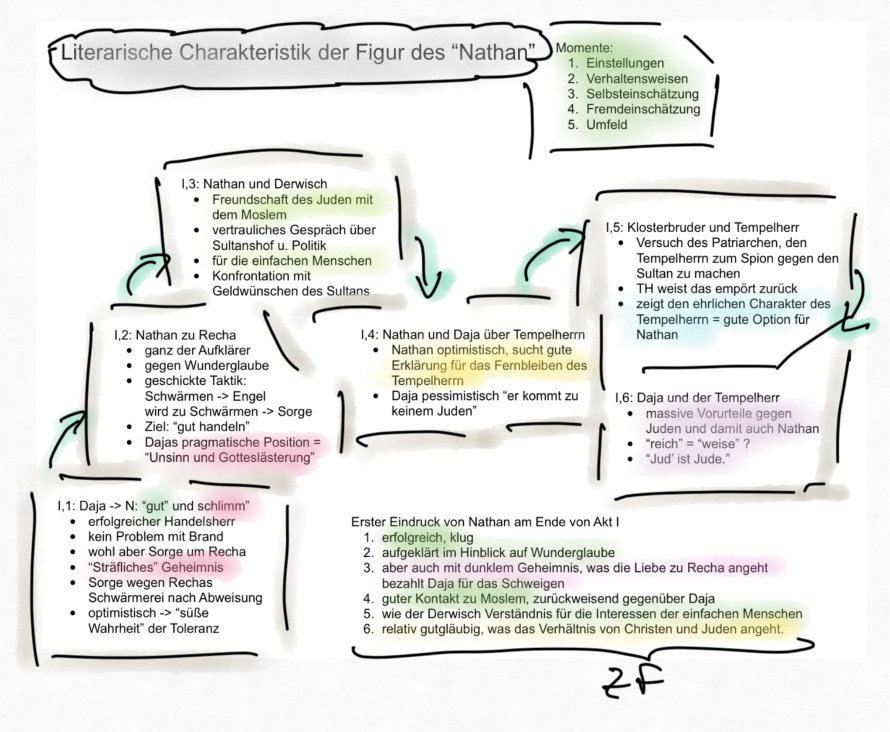 Literarische Charakteristik der Figur des “Nathan”
Momente:
1. Einstellungen
2. Verhaltensweisen
3. Selbsteinschätzung
4. Fremdeinschätzung
5. Umfeld
I,1: Daja -> N: “gut” und schlimm”
• erfolgreicher Handelsherr
• kein Problem mit Brand
• wohl aber Sorge um Recha
• “Sträfliches” Geheimnis
• Sorge wegen Rechas
Schwärmerei nach Abweisung
• optimistisch -> “süße
Wahrheit” der Toleranz
I,2: Nathan zu Recha
• ganz der Aufklärer
• gegen Wunderglaube
• geschickte Taktik:
Schwärmen -> Engel
wird zu Schwärmen -> Sorge
• Ziel: “gut handeln”
• Dajas pragmatische Position =
“Unsinn und Gotteslästerung”
I,3: Nathan und Derwisch
• Freundschaft des Juden mit
dem Moslem
• vertrauliches Gespräch über
Sultanshof u. Politik
• für die einfachen Menschen
• Konfrontation mit
Geldwünschen des Sultans
I,4: Nathan und Daja über Tempelherrn
• Nathan optimistisch, sucht gute
Erklärung für das Fernbleiben des
Tempelherrn
• Daja pessimistisch “er kommt zu
keinem Juden”
I,5: Klosterbruder und Tempelherr
• Versuch des Patriarchen, den
Tempelherrn zum Spion gegen den
Sultan zu machen
• TH weist das empört zurück
• zeigt den ehrlichen Charakter des
Tempelherrn = gute Option für
Nathan
I,6: Daja und der Tempelherr
• massive Vorurteile gegen
Juden und damit auch Nathan
• “reich” = “weise” ?
• “Jud’ ist Jude.”
Erster Eindruck von Nathan am Ende von Akt I
1. erfolgreich, klug
2. aufgeklärt im Hinblick auf Wunderglaube
3. aber auch mit dunklem Geheimnis, was die Liebe zu Recha angeht
bezahlt Daja für das Schweigen
4. guter Kontakt zu Moslem, zurückweisend gegenüber Daja
5. wie der Derwisch Verständnis für die Interessen der einfachen Menschen
6. relativ gutgläubig, was das Verhältnis von Christen und Juden angeht.
ZF